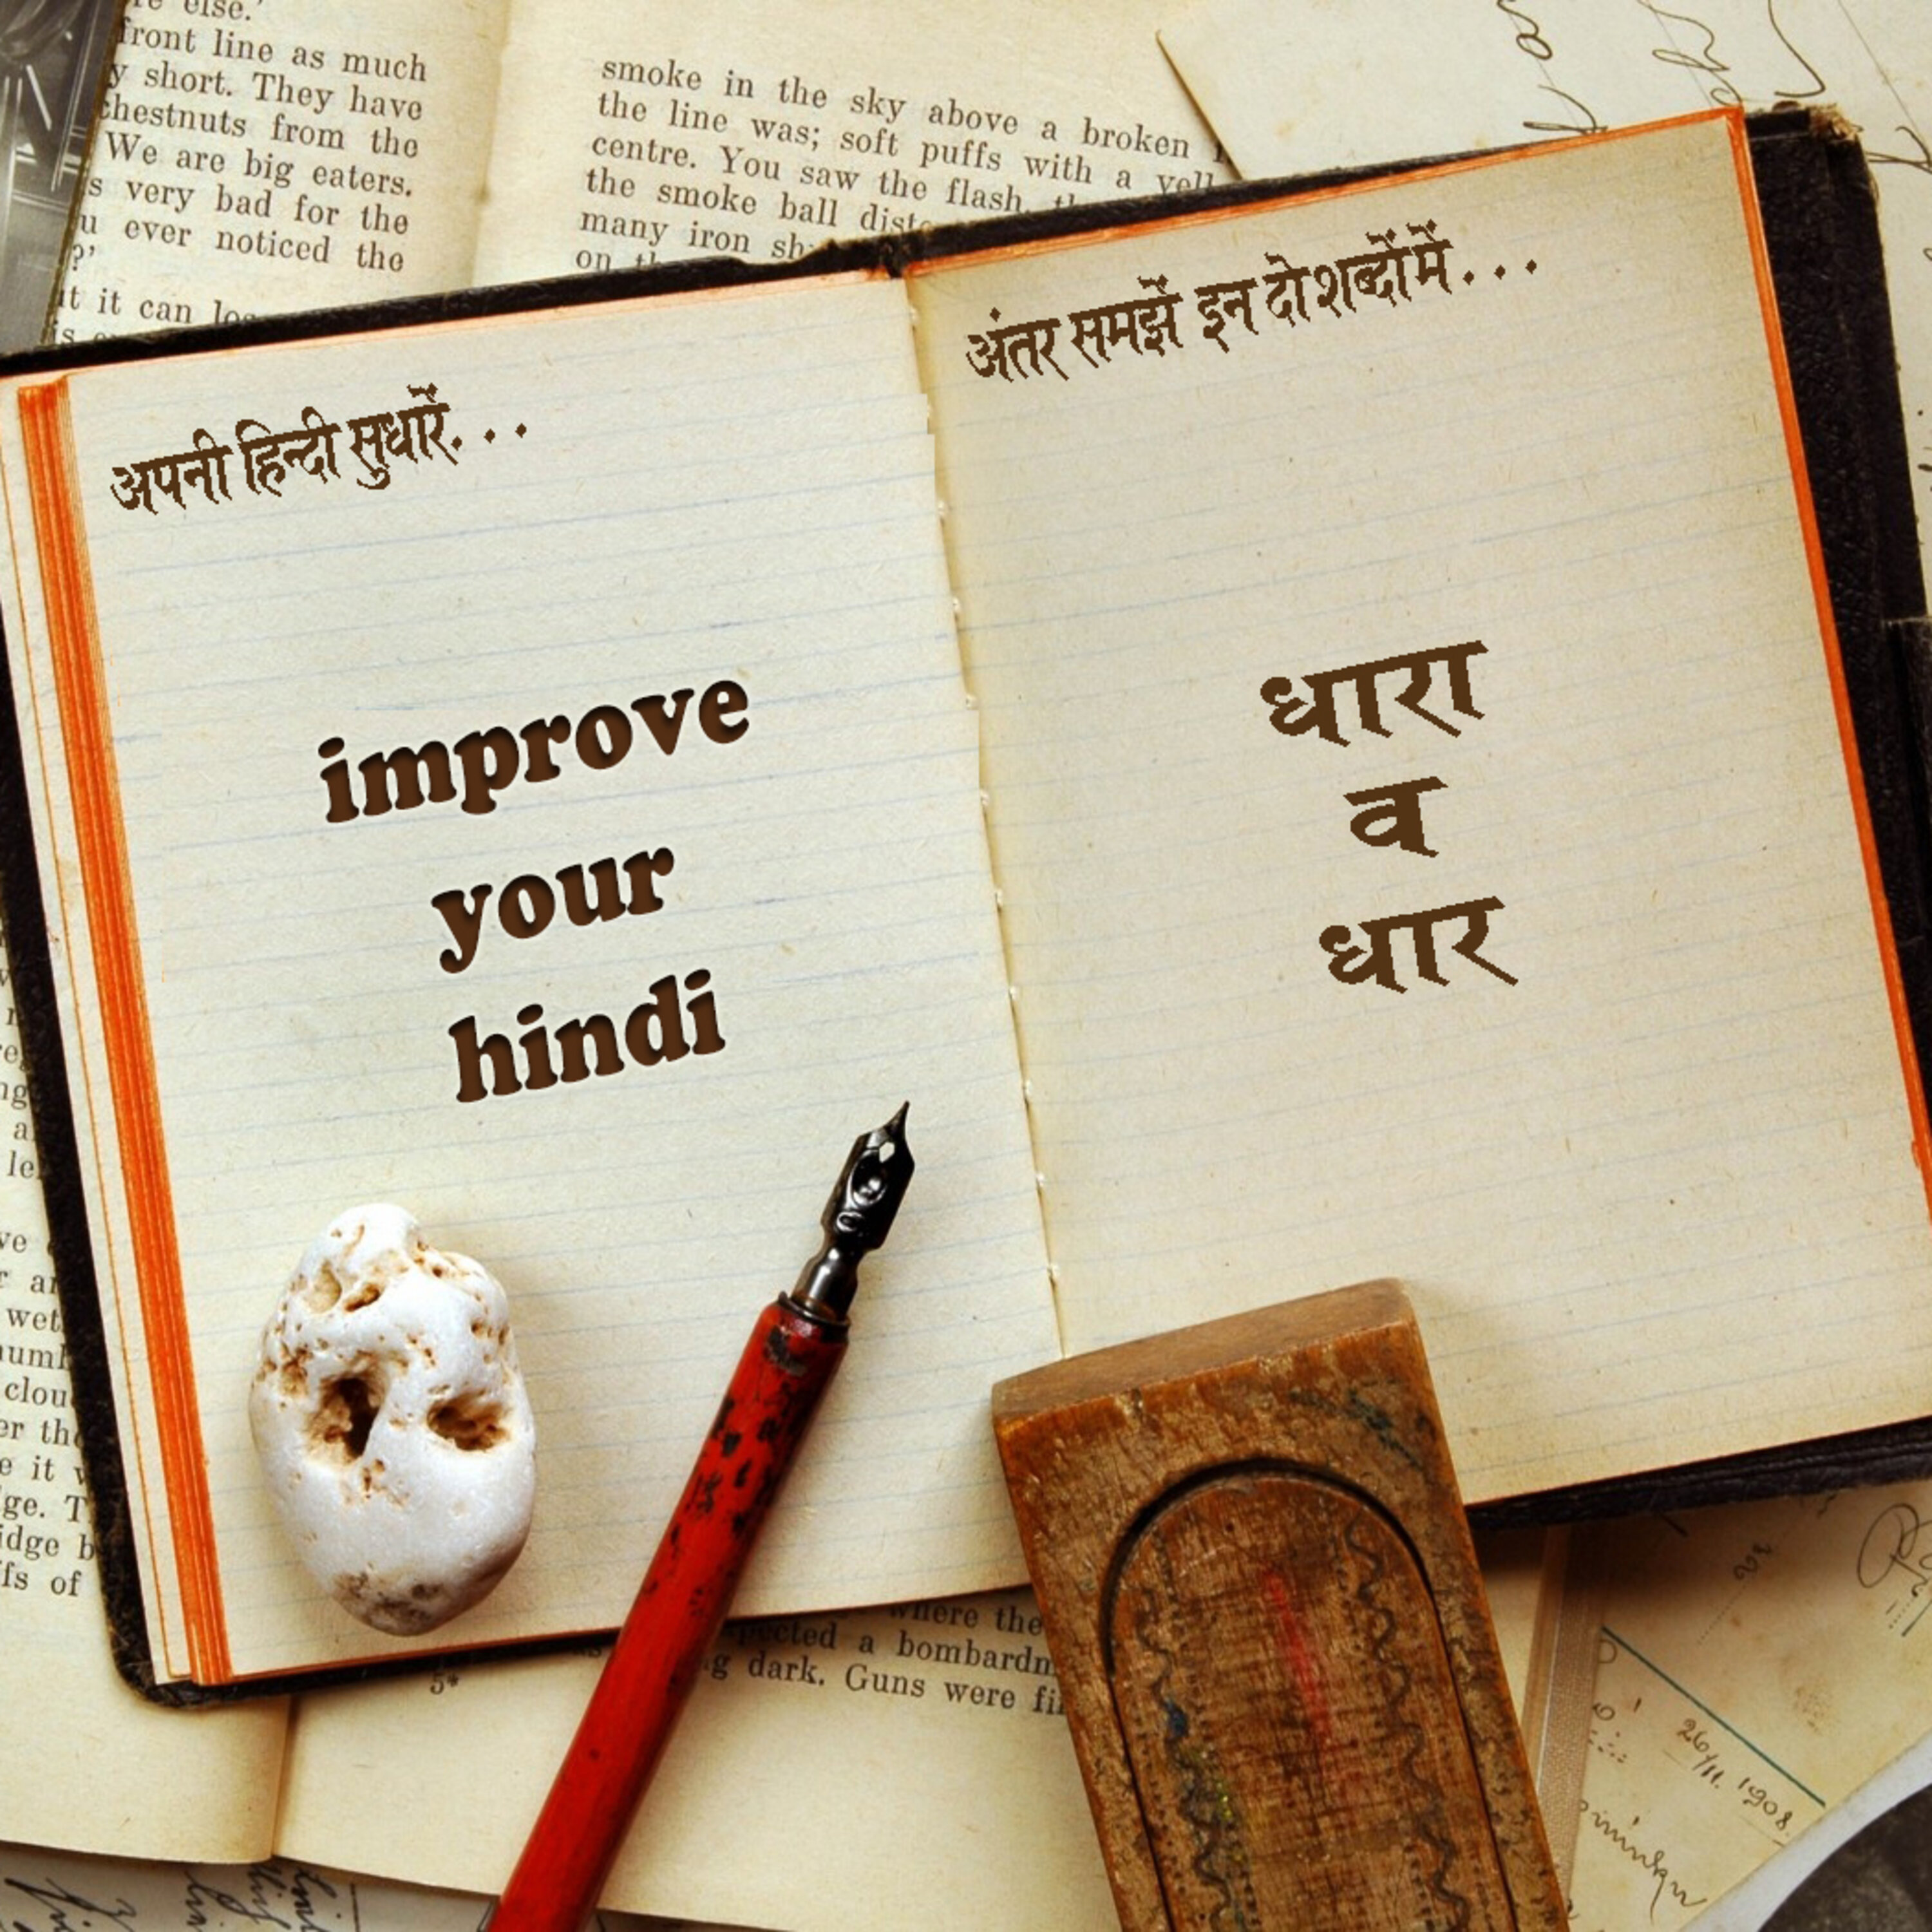 re else.'
front line as much
y short. They have
chestnuts from the
We are big eaters.
s very bad for the
u ever noticed the
?'
it it can
smoke in the sky above a broken
the line was; soft puffs with a yell
centre. You saw the flash,
the smoke ball
many iron
on
अपनी हिन्दी सुधारें. . .
improve
your
hindi
अंतर समझें इन दो शब्दों में . . .
धारा
व
धार
wet
clou
er the
e it
ge. T
idge b
fs of
where the
pected a bombardm
g dark. Guns were
5*
26/11. 1908.